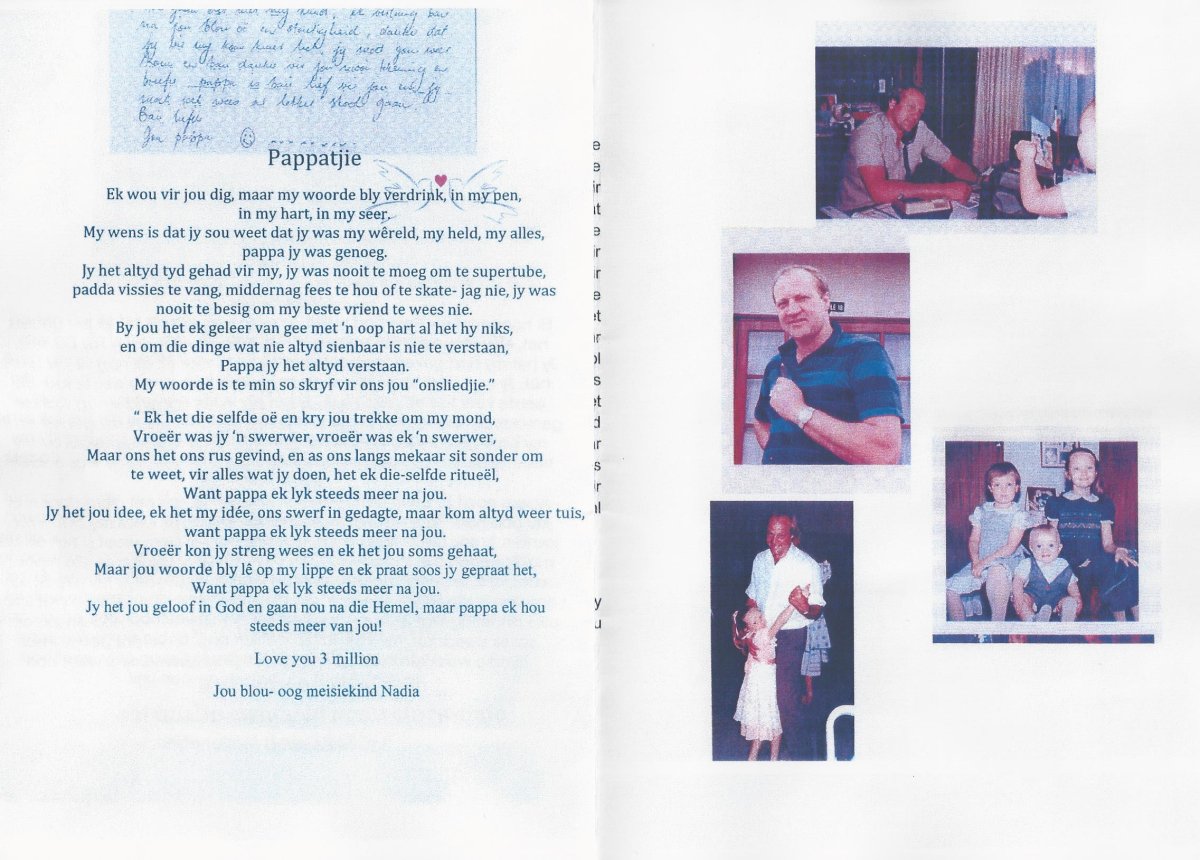 na jou blou oë en
jy
pappa is baie lief vir jou en jy
moet
Baie liefde
Jou pappa
Pappatjie
Ek wou vir jou dig, maar my woorde bly verdrink, in my pen,
in my hart, in my seer.
My wens is dat jy sou weet dat jy was my wêreld, my held, my alles,
pappa jy was genoeg.
Jy het altyd tyd gehad vir my, jy was nooit te moeg om te supertube,
padda vissies te vang, middernag fees te hou of te skate- jag nie, jy was
nooit te besig om my beste vriend te wees nie.
By jou het ek geleer van gee met ‘n oop hart al het hy niks,
en om die dinge wat nie altyd sienbaar is nie te verstaan,
Pappa jy het altyd verstaan.
My woorde is te min so skryf vir ons jou “onsliedjie.”
“ Ek het die selfde oë en kry jou trekke om my mond,
Vroeër was jy ‘n swerwer, vroeër was ek ‘n swerwer,
Maar ons het ons rus gevind, en as ons langs mekaar sit sonder om
te weet, vir alles wat jy doen, het ek die-selfde ritueël,
Want pappa ek lyk steeds meer na jou.
Jy het jou idee, ek het my idée, ons swerf in gedagte, maar kom altyd weer tuis,
want pappa ek lyk steeds meer na jou.
Vroeër kon jy streng wees en ek het jou soms gehaat,
Maar jou woorde bly lê op my lippe en ek praat soos jy gepraat het,
Want pappa ek lyk steeds meer na jou.
Jy het jou geloof in God en gaan nou na die Hemel, maar pappa ek hou
steeds meer van jou!
Love you 3 million
Jou blou- oog meisiekind Nadia